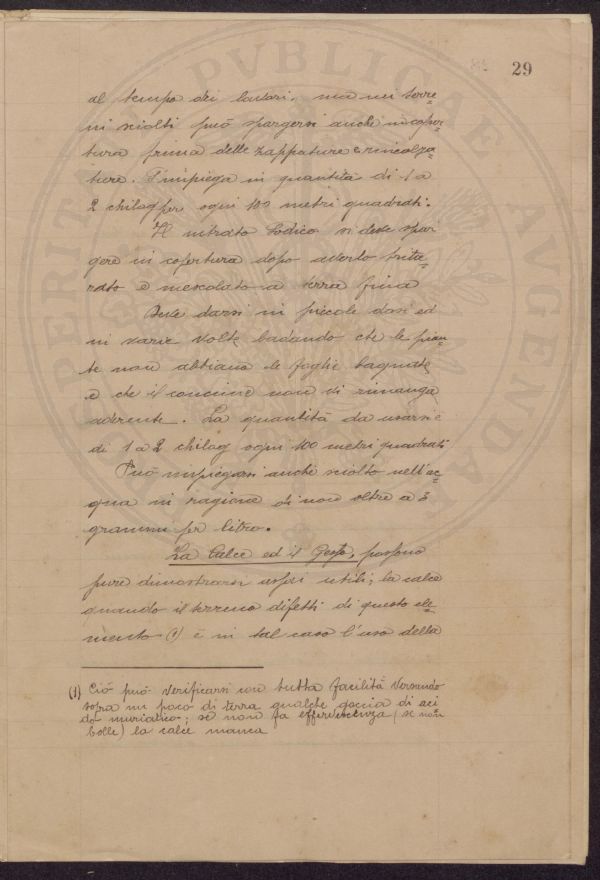 29
al tempo dei lavori, ma nei terre=
ni sciolti può spargersi anche in coper=
tura prima delle zappature e rincalza=
ture. S'impiega in quantità di 1 a
2 chilog per ogni 100 metri quadrati.
Il nitrato sodico si deve spar=
gere in copertura dopo averlo tritu=
rato e mescolato a terra fina
Deve darsi in piccole dosi ed
in varie volte badando che le pian=
te non abbiano le foglie bagnate
e che il concime non vi rimanga
aderente. La quantità da usarsi è
di 1 a 2 chilog ogni 100 metri quadrati
Può impiegarsi anche sciolto nell'ac=
qua in ragione di non oltre a 3
grammi per litro.
La Calce ed il Gesso, possono
pure dimostrarsi assai utili; la calce
quando il terreno difetti di questo ele=
mento (1) è in tal caso l'uso della
(1) Ciò può verificarsi con tutta facilità versando
sopra un poco di terra qualche goccia di aci=
do muriatico; se non fa effervescenza (se non
bolle) la calce manca
PVBLICAE
AVGENDAE